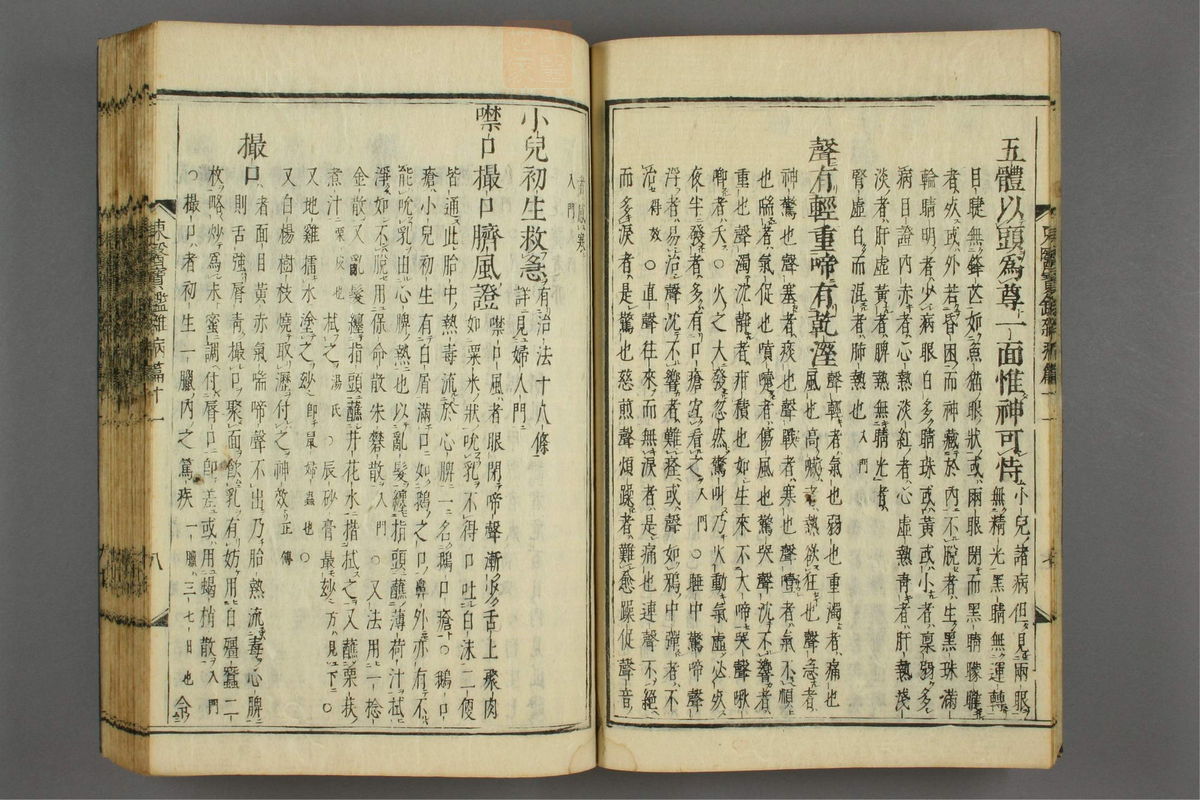 五體以頭為尊一面惟神可恃 小兒諸病但見兩眼
無精光黑睛無運轉
目睫無鋒芒如魚猫眼狀或兩眼閉而黑睛朦朧
者死或外若昏困而神藏於內不脫者生黑珠滿
輪睛明者少病眼白多睛珠或黃或小者稟弱多
病目證內赤者心熱淡紅者心虛熱青者肝熱淺
淡者肝虛黃者脾熱無睛光者
腎虛白而混者肺熱也 入門
聲有輕重啼有乾溼 聲輕者氣也弱也重濁者痛也
風也高喊者熱欲狂也聲急者
神驚也聲塞者痰也聲戰者寒也聲噎者氣不順
也喘者氣促也噴嚏者傷風也驚哭聲沈不響者
重也聲濁沈靜者疳積也如生來不大啼哭聲啾
唧者夭○火之大發忽然驚叫乃火動氣虛必死
夜半發者多有口瘡宜看之 入門 ○睡中驚啼聲
浮者易治聲沈不響者難痊或聲如鴉中彈者不
治 得效 ○直聲往來而無淚者是痛也連聲不絕
而多淚者是驚也慈煎聲煩躁者難愈躁促聲音
者感寒
入門
小兒初生救急 有治法十八條
詳見婦人門
噤口撮口臍風證 噤口風者眼閉啼聲漸少舌上聚肉
如粟米狀吮乳不得口吐白沫二便
皆通此胎中熱毒流於心脾一名鵝口瘡○鵝口
瘡小兒初生有白屑滿口如鵝之口鼻外亦有不
能吮乳由心脾熱也以亂髮纏指頭蘸薄荷汁拭
淨如不脫用保命散朱礬散 入門 ○又法用一捻
金散又亂髮纏指頭蘸井花水揩拭之又蘸栗荴
煮汁 栗皮也 拭之 湯氏 ○辰砂膏最妙 方見下 ○
又地雞擂水塗之妙 即鼠婦蟲也 ○
又白楊樹枝燒取瀝付之神效 正傳
撮口者面目黃赤氣喘啼聲不出乃胎熱流毒心脾
故則舌強脣青撮口聚面飲乳有妨用白殭蠶二
枚略炒為末蜜調付脣口即差或用蝎梢散 入門
○撮口者初生一臘內之篤疾 一臘三七日也 令
東醫寶鑑雜病篇十一
八